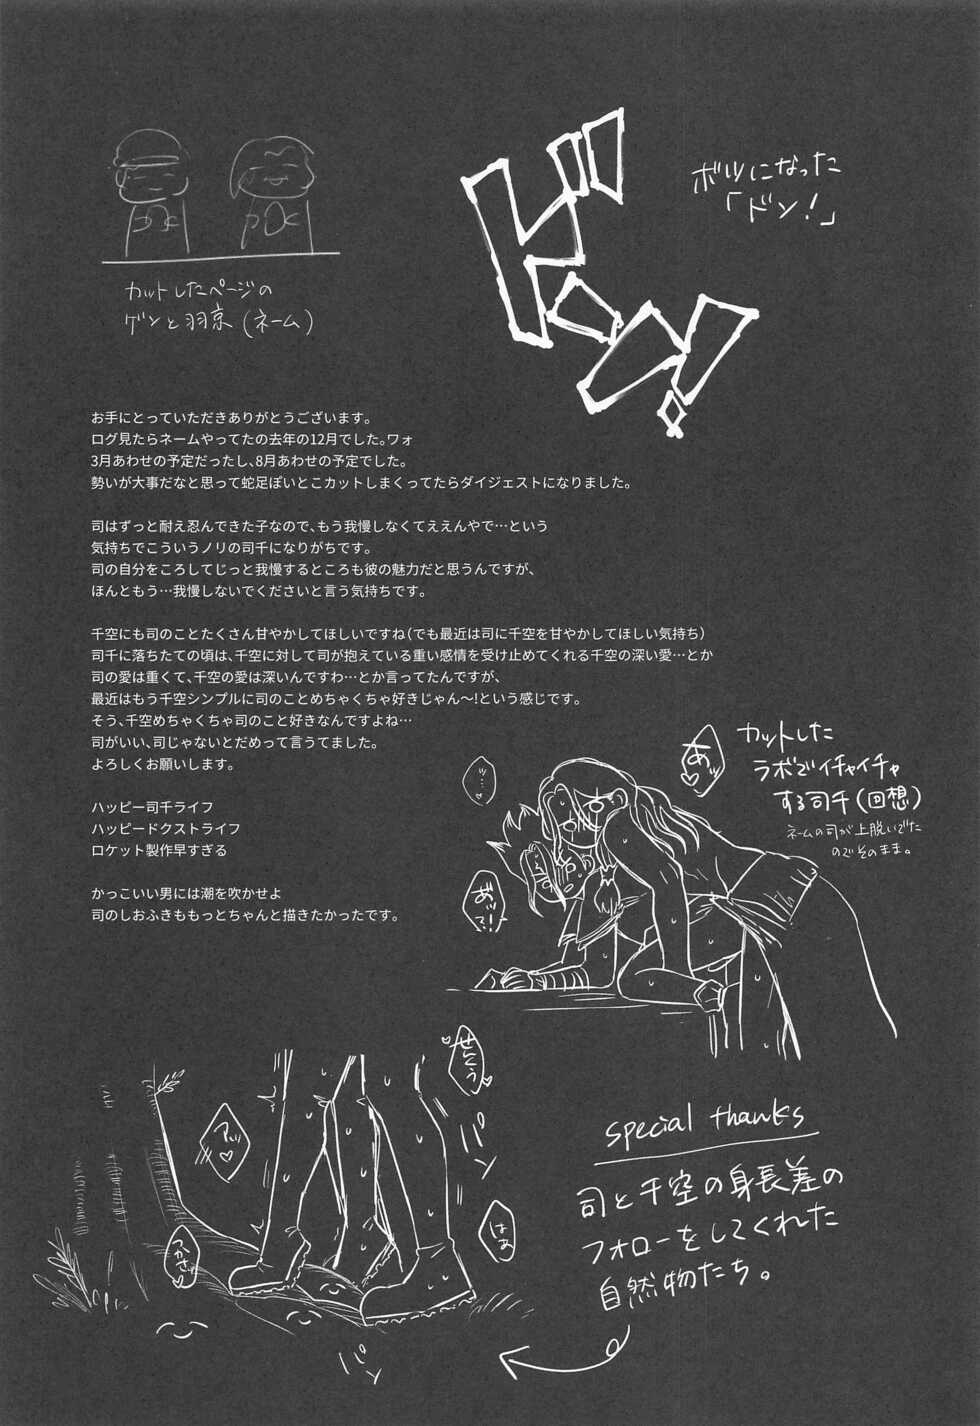 ボツになった
「ドン!」
ドン!
カットしたページの
ゲンと羽京(ネーム)
お手にとっていただきありがとうございます。
ログ見たらネームやってたの去年の12月でした。ワォ
3月あわせの予定だったし、8月あわせの予定でした。
勢いが大事だなと思って蛇足ぽいとこカットしまくってたらダイジェストになりました。
司はずっと耐え忍んできた子なので、もう我慢しなくてええんやで…という
気持ちでこういうノリの司千になりがちです。
司の自分をころしてじっと我慢するところも彼の魅力だと思うんですが、
ほんともう…我慢しないでくださいと言う気持ちです。
千空にも司のことたくさん甘やかしてほしいですね(でも最近は司に千空を甘やかしてほしい気持ち)
司千に落ちたての頃は、千空に対して司が抱えている重い感情を受け止めてくれる千空の深い愛…とか
司の愛は重くて、千空の愛は深いんですわ…とか言ってたんですが、
最近はもう千空シンプルに司のことめちゃくちゃ好きじゃん〜!という感じです。
そう、千空めちゃくちゃ司のこと好きなんですよね…
司がいい、司じゃないとだめって言うてました。
よろしくお願いします。
ハッピー司千ライフ
ハッピードクストライフ
ロケット製作早すぎる
かっこいい男には潮を吹かせよ
司のしおふきももっとちゃんと描きたかったです。
カットした
ラボでイチャイチャ
する司千(回想)
ネームの司が上脱いでた
のでそのまま。
あッ♡
ッ…♡
あ゛ッて!
せんくう
アッ♡
つかさ
はあ
パン
パン
special thanks
司と千空の身長差の
フォローをしてくれた
自然物たち。